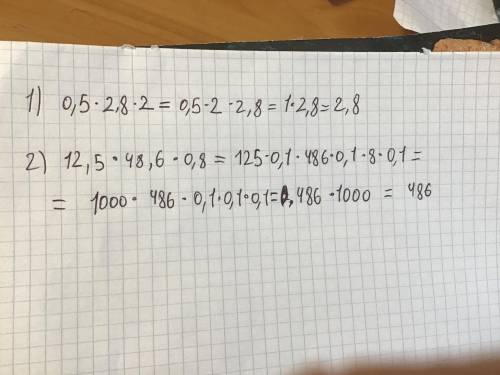 1) 0,5·2,8·2 = 0,5·2·2,8 = 1·2,8 = 2,8
2) 12,5·48,6·0,8 = 125·0,1·486·0,1·8·0,1 =
= 1000·486·0,1·0,1·0,1 = 0,486·1000 = 486